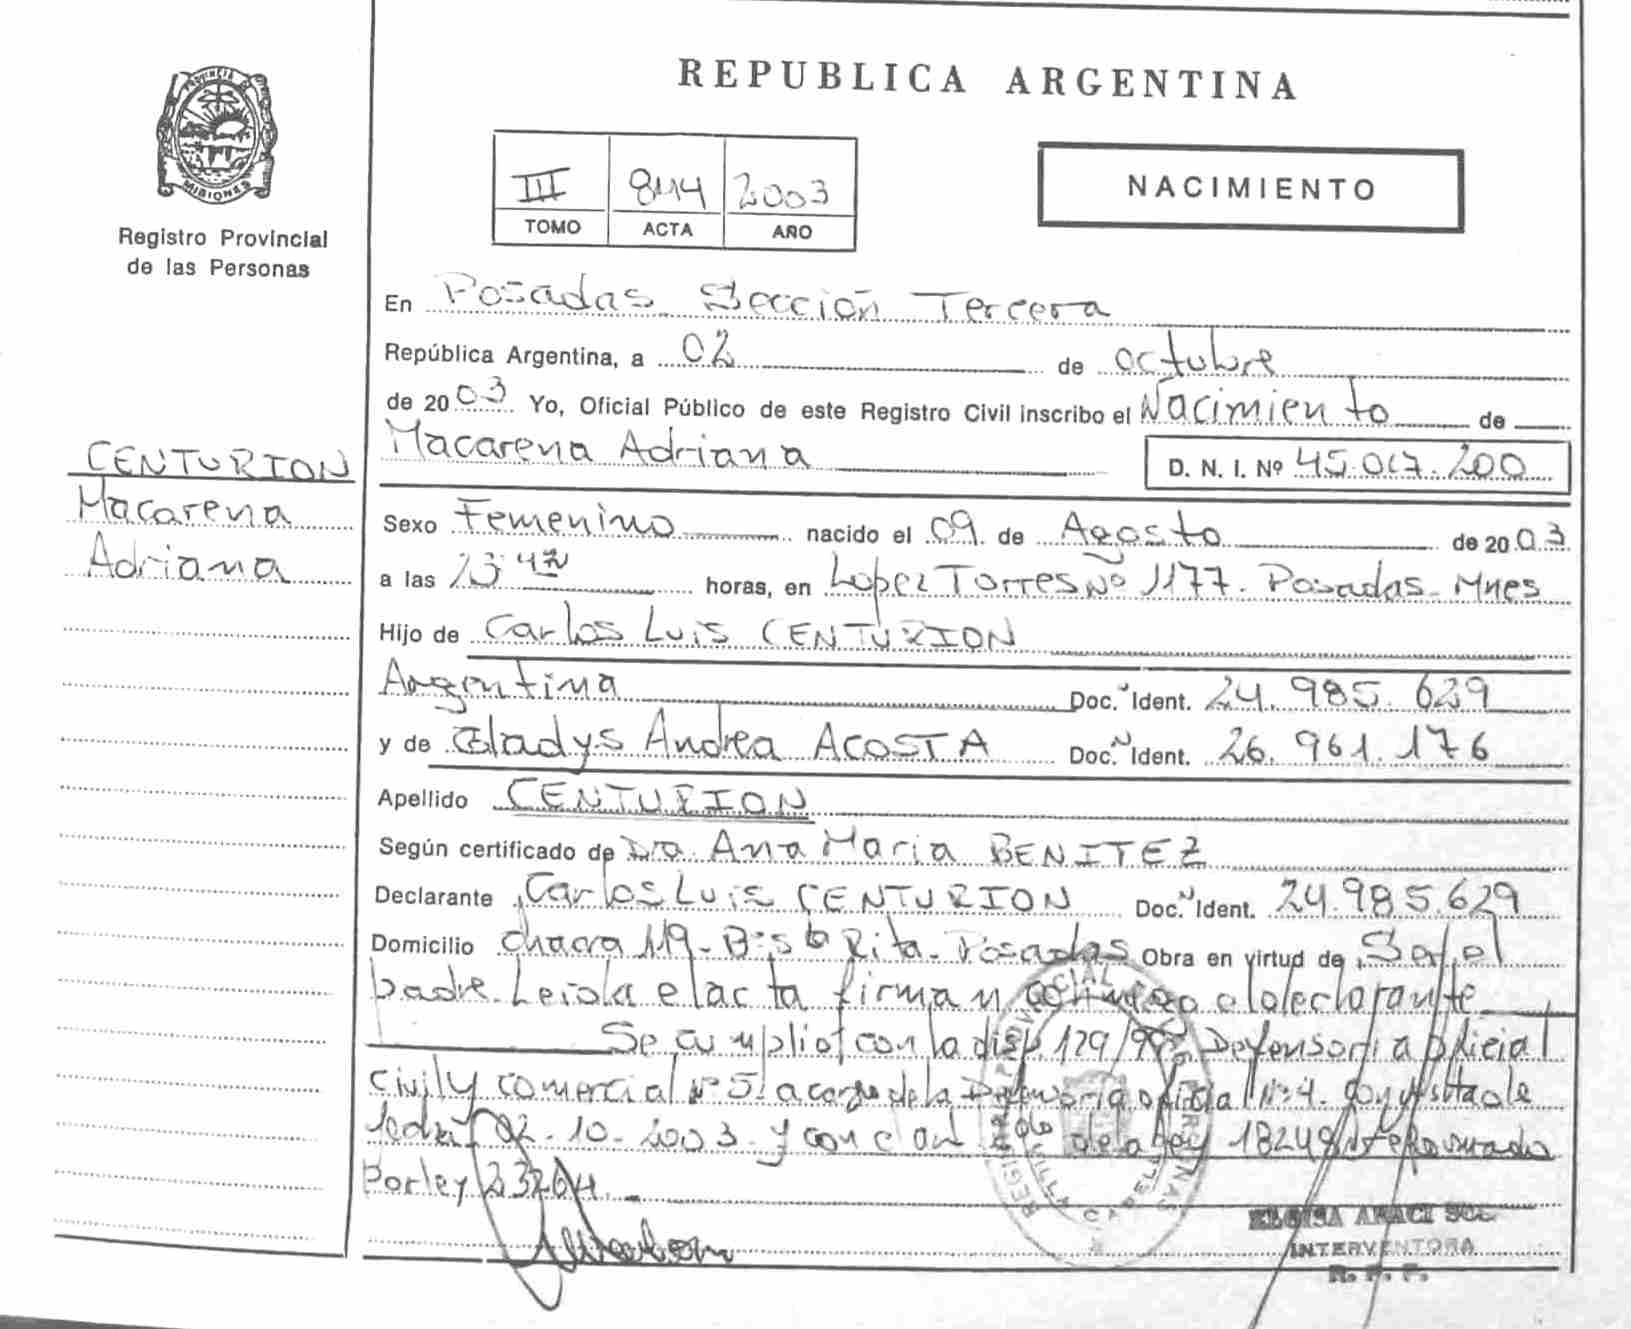 PROVINCIA
MISIONES
Registro Provincial
de las Personas
REPUBLICA ARGENTINA
III 844 2003
TOMO ACTA AÑO
NACIMIENTO
En Posadas Sección Tercera
República Argentina, a 02 de octubre
de 2003 Yo, Oficial Público de este Registro Civil inscribo el Nacimiento de
Macarena Adriana D. N. I. Nº 45.017.200
CENTURION
Macarena
Adriana
Sexo Femenino nacido el 09 de Agosto de 2003
a las 23 horas, en Lopez Torres Nº 1177. Posadas. Mnes
Hijo de Carlos Luis CENTURION
Argentina Doc. Ident. 24.985.629
y de Gladys Andrea ACOSTA Doc. Ident. 26.961.176
Apellido CENTURION
Según certificado de Dra. Ana Maria BENITEZ
Declarante Carlos Luis CENTURION Doc. Ident. 24.985.629
Domicilio chacra 119 - Bº Sta Rita - Posadas Obra en virtud de Ser el
padre. Leida el acta firman conmigo el declarante
Se cumpliof con la disp. 129/ Defensoria oficial
Civil y comercial Nº 5 a cargo de la Defensoria oficial Nº 4. con vista de
02-10-2003. y con el de la ley 18248
Por ley 23264.
REGISTRO PROVINCIAL PERSONAS
INTERVENTORA
R. P. P.